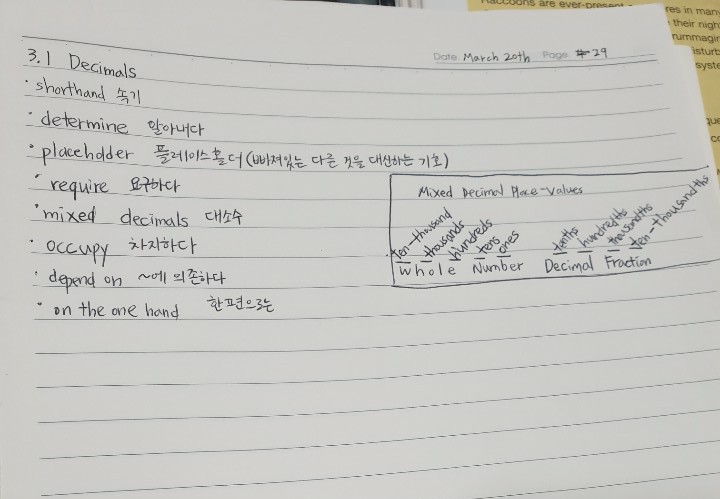 Raccoons are ever-present
res in man
their nigh
rummagin
isturb
syste
Date March 20th Page #29
3.1 Decimals
· shorthand 속기
· determine 알아내다
· placeholder 플레이스홀더(빠져있는 다른 것을 대신하는 기호)
· require 요구하다
· mixed decimals 대소수
· occupy 차지하다
· depend on ~에 의존하다
· on the one hand 한편으로는
Mixed Decimal Place-Values
ten-thousand thousands hundreds tens ones tenths hundredths thousandths ten-thousandths
Whole Number Decimal Fraction